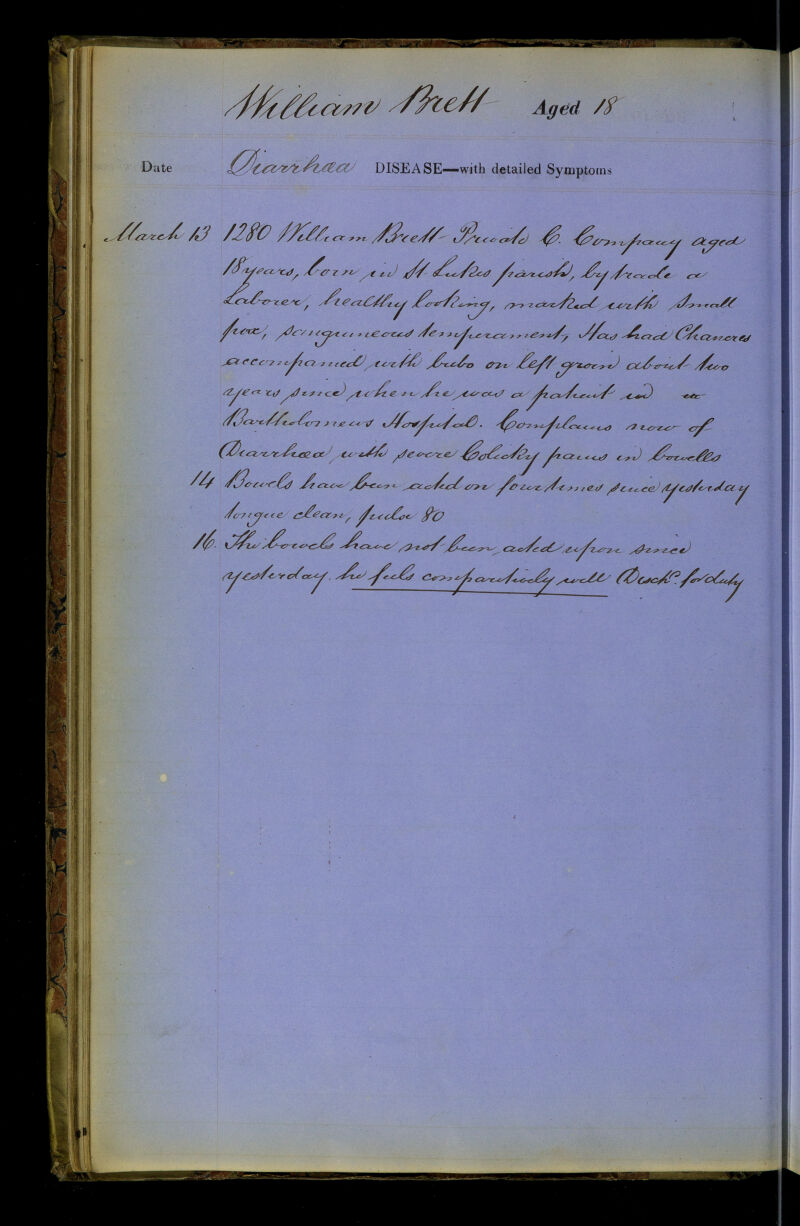 William Brett Aged 18
Date Diarrhæa DISEASE—with detailed Symptoms
March 13 1280 William Brett - Private C. Company aged
18 years, born in St Lukes parish, by trade a
Laborer, healthy looking, marked with Small
pox, sanguineous temperament, Has had Chancres
accompanied with bubo on left groin about two
years since when he was a patient in
Bartholomews Hospital. Complains now of
Diarrhæa with severe Colicky pains in bowells
14 Bowels have been acted on four times since yesterday
tongue clean, pulse 80
16. The bowels have not been acted upon since
yesterday. he feels comparitively well Disch<sup>d</sup>. for duty